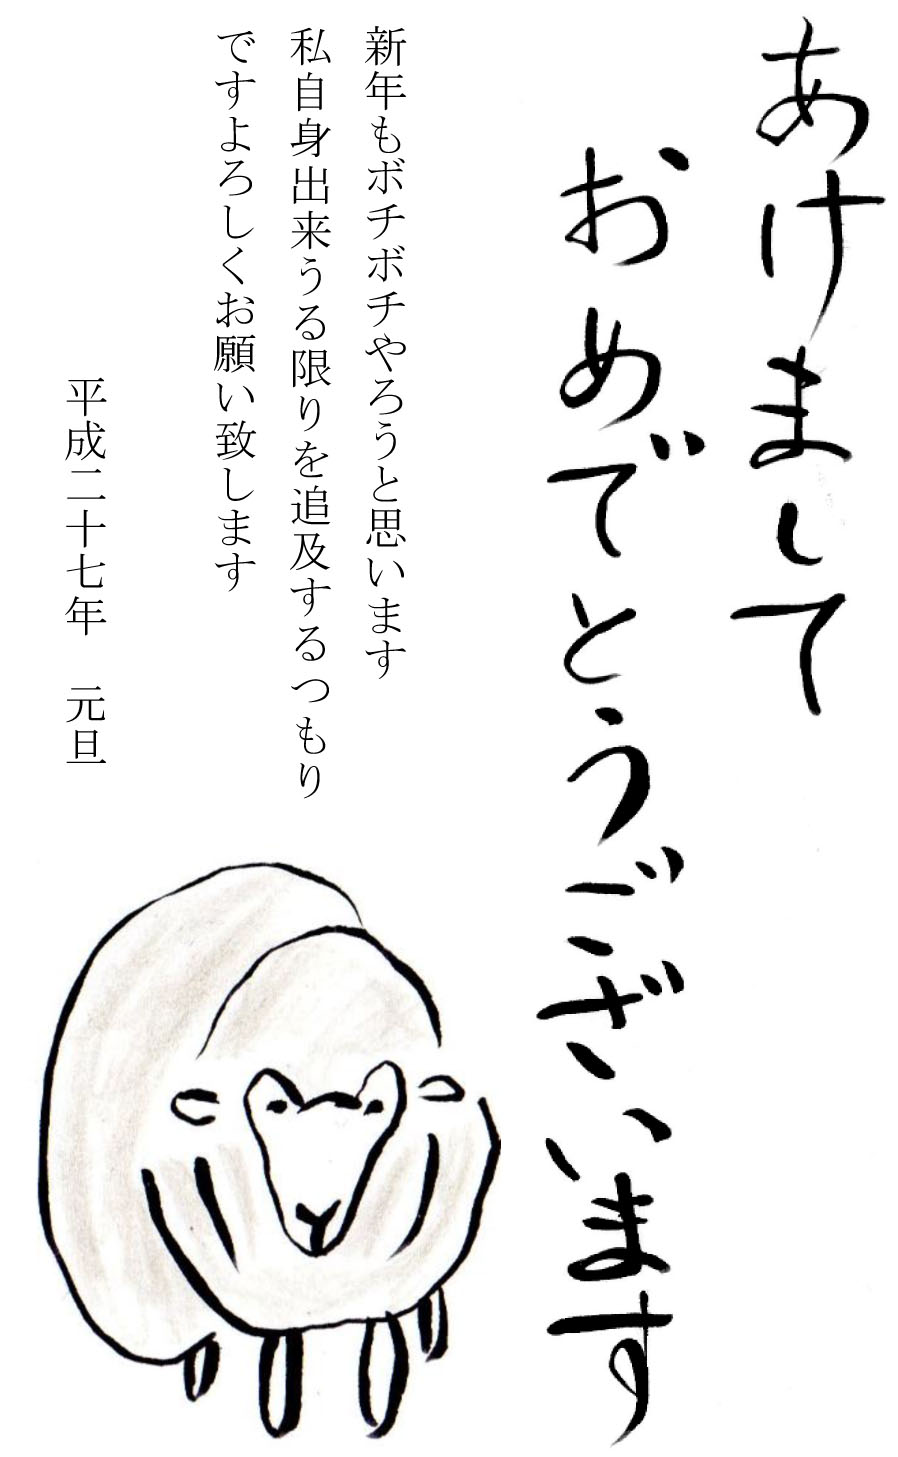 あけまして
おめでとうございます
新年もボチボチやろうと思います
私自身出来うる限りを追及するつもり
ですよろしくお願い致します
平成二十七年　元旦